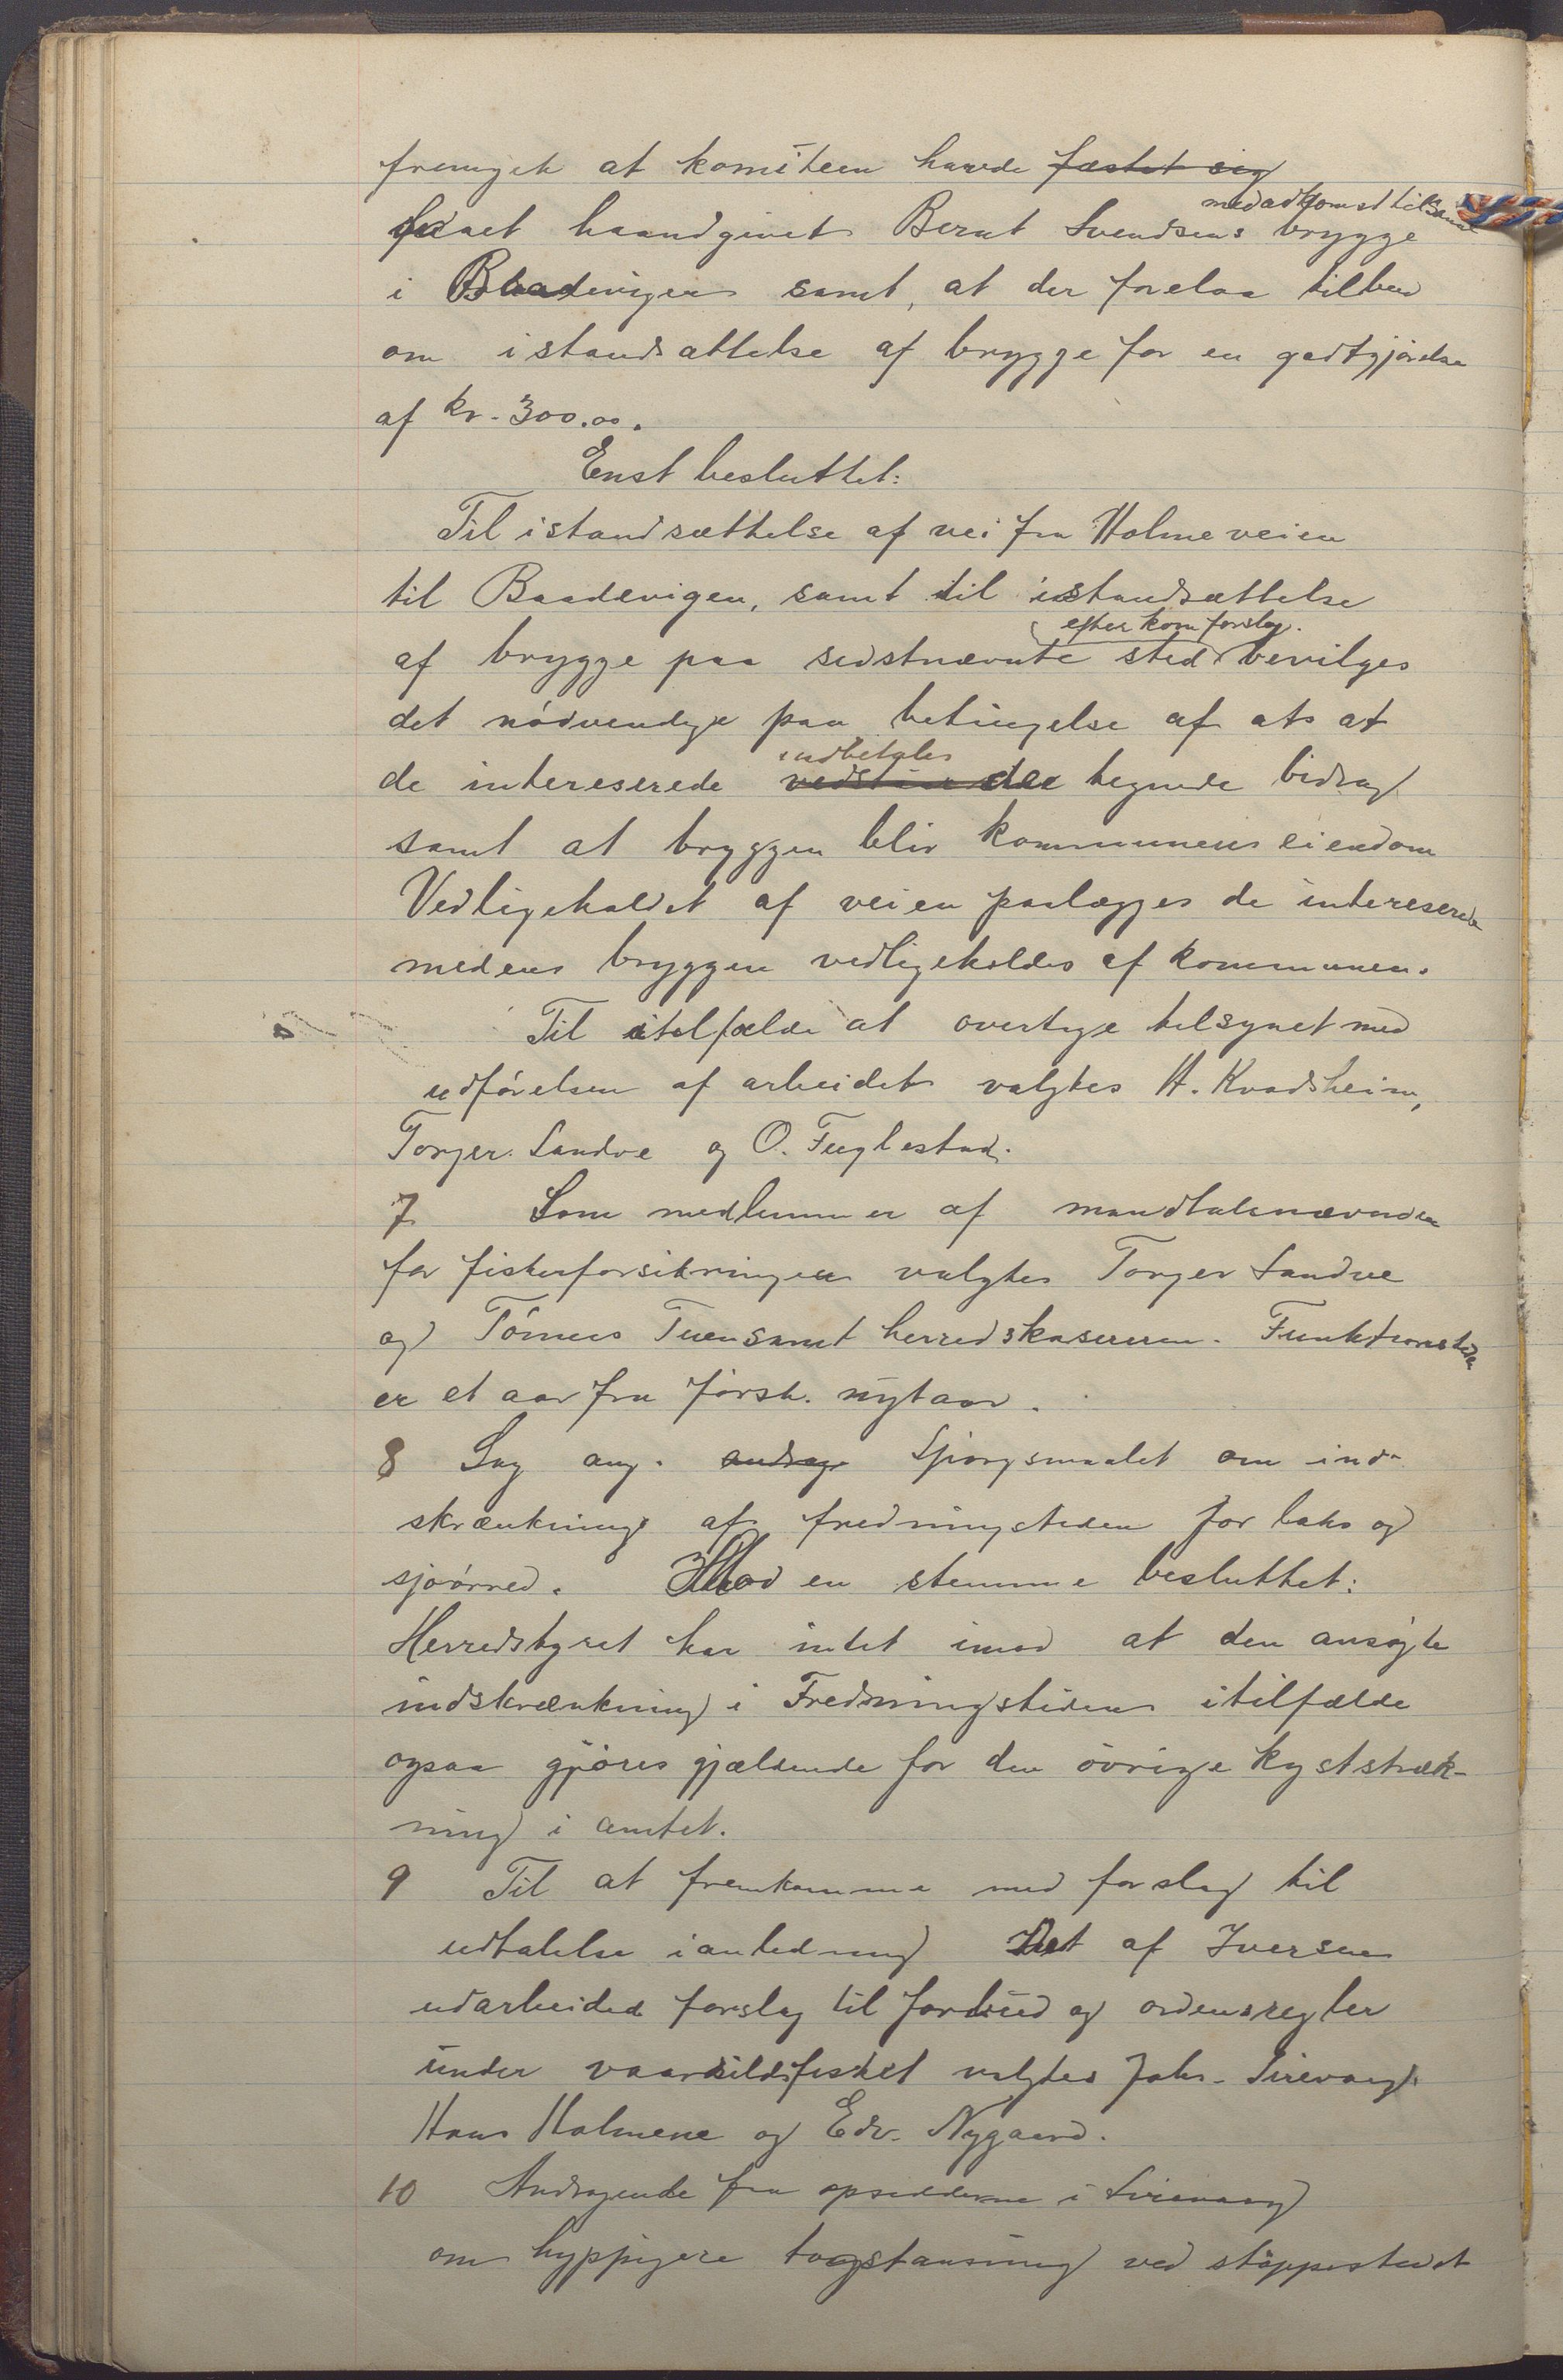 fremgik at komiteen havde fæstet sig
faaet haandgivet Berut Svendsens brygge med adkomst til samme
i Baadevigen samt, at der forelaa tilbud
om istandsættelse af brygge for en godtgjørelse
af kr. 300.00.
Enst besluttet:
Til istandsættelse af vei fra Holmeveien
til Baadevigen, samt til istandsættelse
efter kom forslag.
af brygge paa sidstnævnte sted bevilges
det nødvendige paa betingelse af at at
indbetaler
de intereserede vedstaar de tegnede bidrag
samt at bryggen bliv kommunens eiendom
Vedligeholdet af veien paalægges de intereserede
medens bryggen vedligeholdes af kommunen.
Til itilfælde at overtage tilsynet med
udførelsen af arbeidet valgtes H. Kvadsheim,
Torger Sandve og O. Fuglestad.
7 Som medlemmer af mandtalsnævnden
for fiskerforsikringen valgtes Torger Sandve
og Tönnes Tuen samt herredskasereren. Funktionstiden
er et aar fra förstk. nytaar.
8 Sag ang. andrag Spörgsmaalet om ind-
skrænkning af fredningstiden for laks og
sjöörred. Mod en stemme besluttet:
Herredstyret har intet imod at den ansögte
indskrænkning i Fredningstiden itilfælde
ogsaa gjöres gjældende for den övrige kyststræk-
ning i amtet.
9 Til at fremkomme med forslag til
udtalelse ianledning Det af Iversen
udarbeided forslag til forbud og ordensregler
under vaarsildfisket valgtes Jahs. Sirevaag,
Hans Holmene og Edv. Nygaard.
10 Andragende fra opsidderne i Sirevaag
om hyppigere togstansning ved stoppestedet